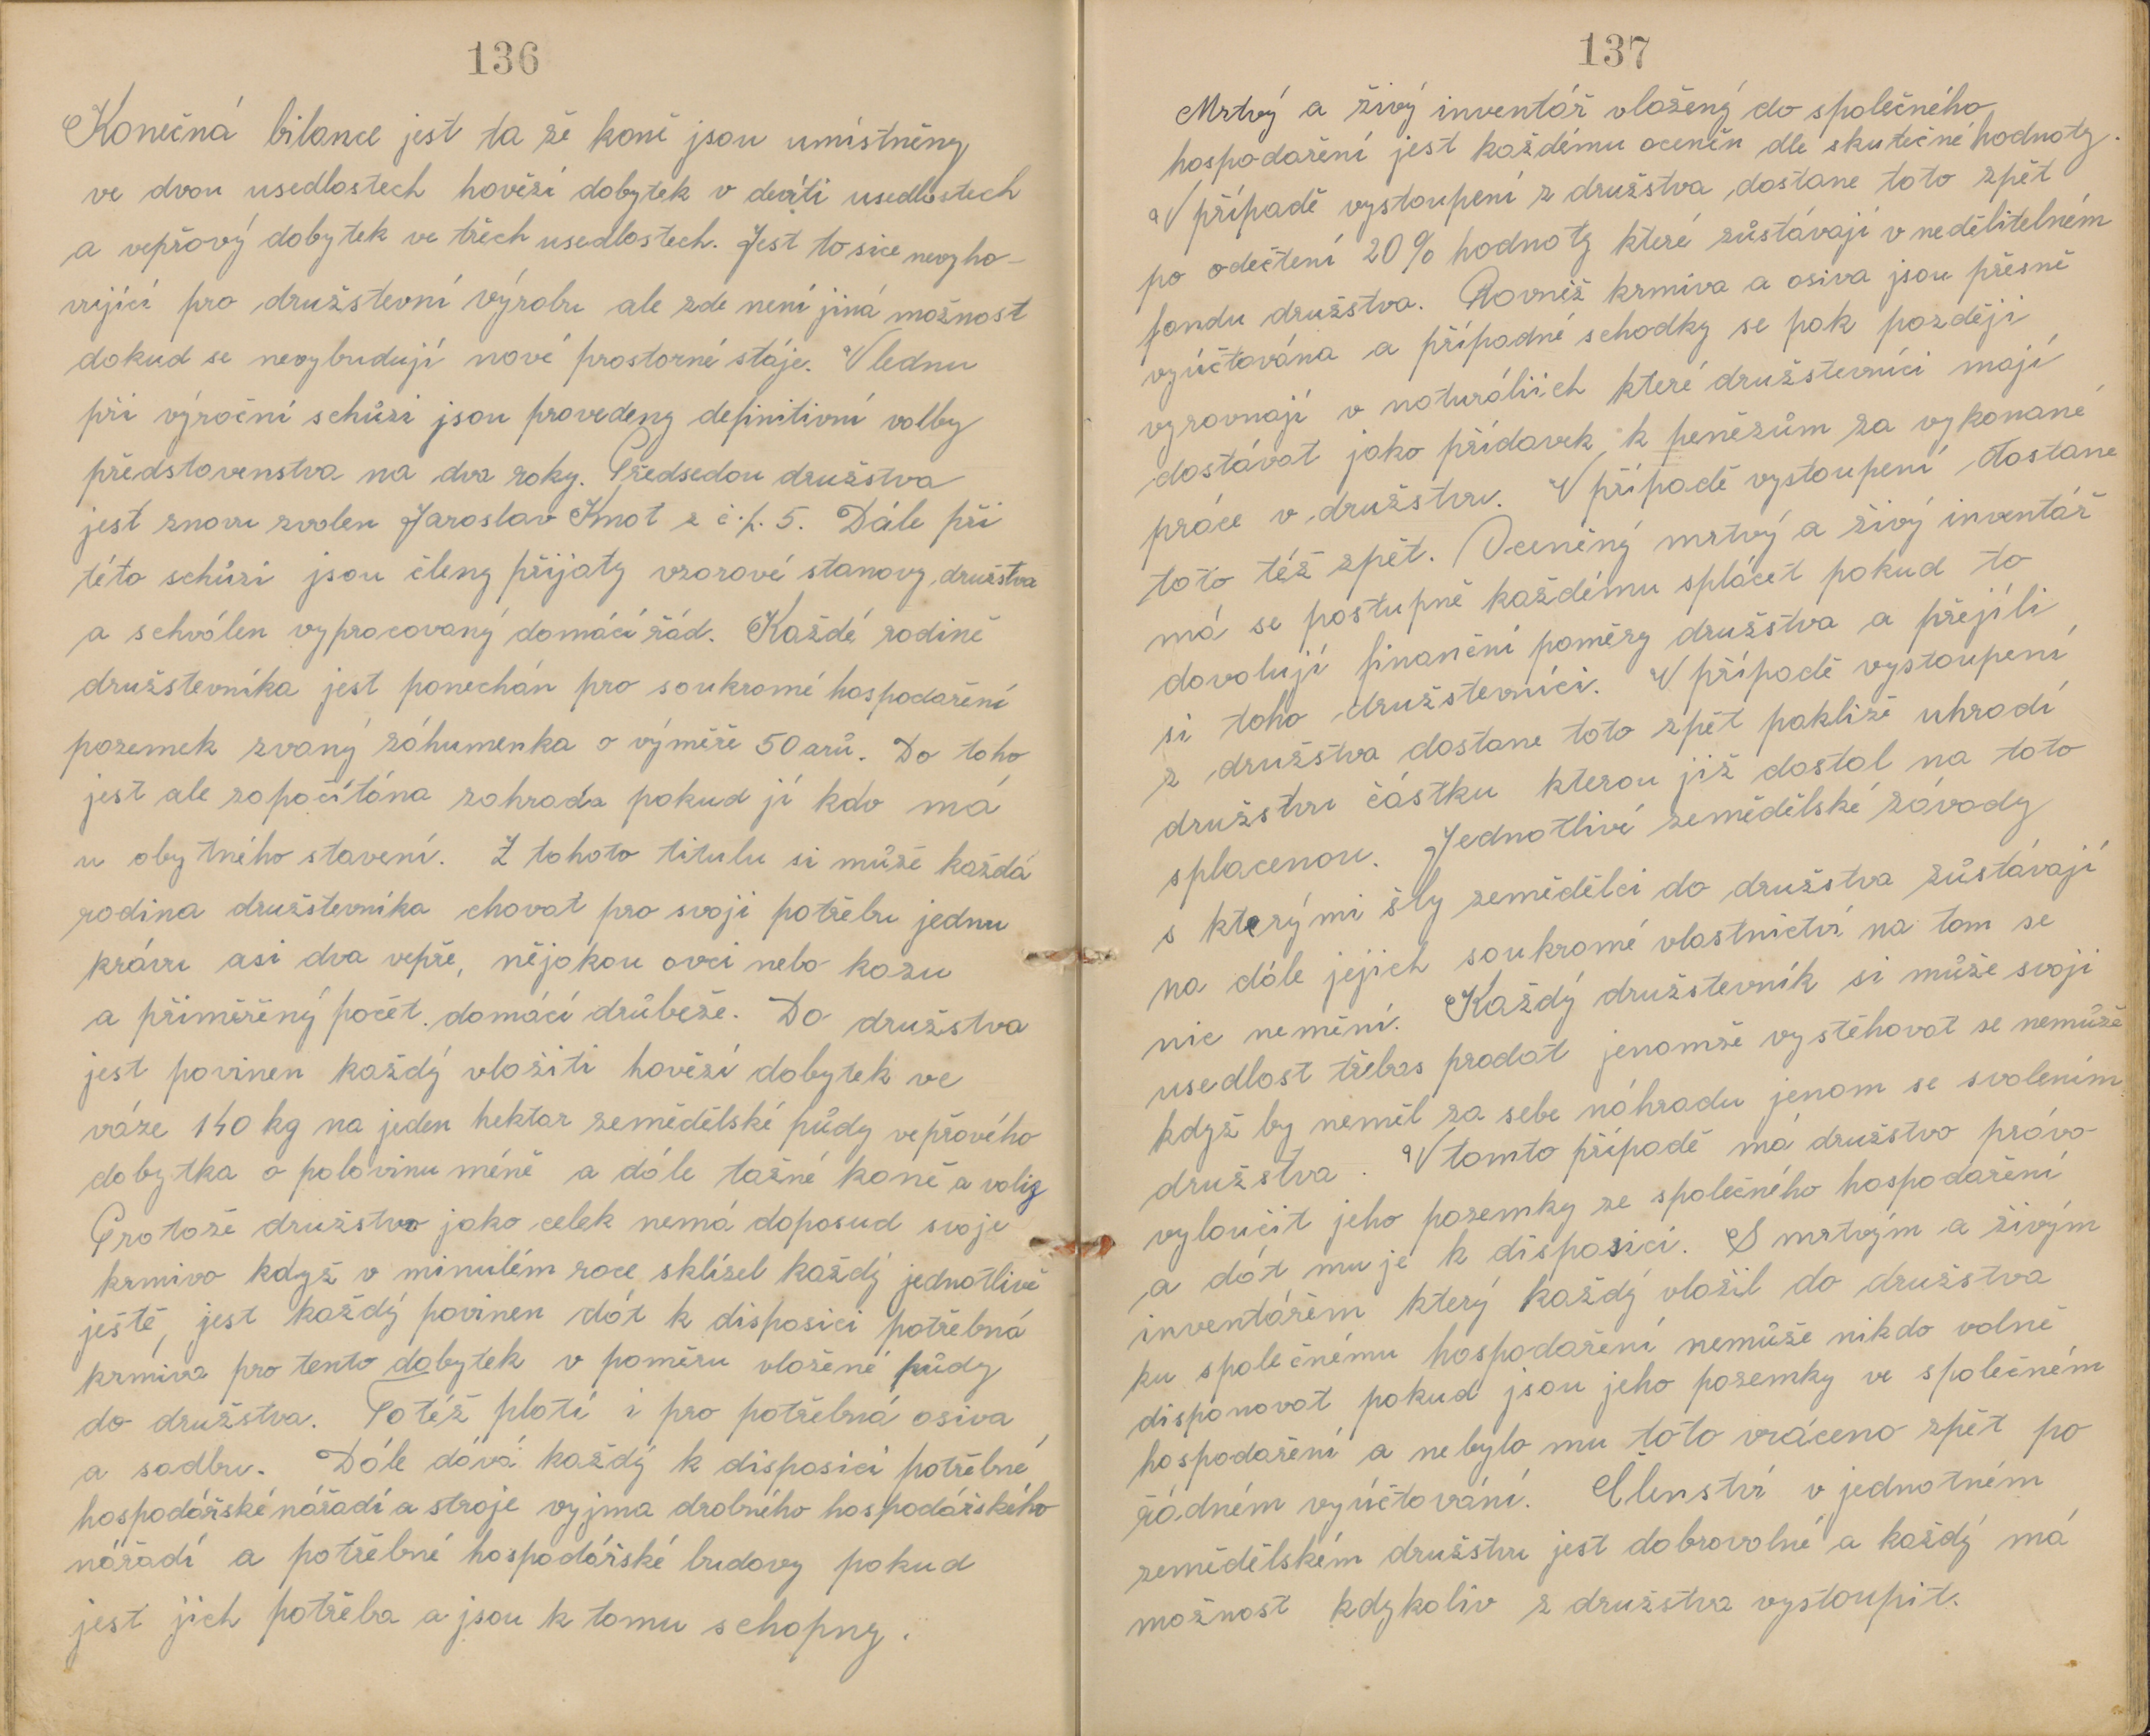 136
Konečná bilance jest ta že koně jsou umístněny
ve dvou usedlostech hovězí dobytek v devíti usedlostech
a vepřový dobytek ve třech usedlostech. Jest to sice nevyho-
vující pro družstevní výrobu ale zde není jiná možnost
dokud se nevybudují nové prostorné stáje. V lednu
při výroční schůzi jsou provedeny definitivní volby
představenstva na dva roky. Předsedou družstva
jest znovu zvolen Jaroslav Kmot z č.p. 5. Dále při
této schůzi jsou členy přijaty vzorové stanovy družstva
a schválen vypracovaný domácí řád. Každé rodině
družstevníka jest ponechán pro soukromé hospodaření
pozemek zvaný záhumenka o výměře 50 arů. Do toho
jest ale započítána zahrada pokud jí kdo má
u obytného stavení. Z tohoto titulu si může každá
rodina družstevníka chovat pro svoji potřebu jednu
krávu asi dva vepře, nějakou ovci nebo kozu
a přiměřený počet domácí drůbeže. Do družstva
jest povinen každý vložiti hovězí dobytek ve
váze 140 kg na jeden hektar zemědělské půdy vepřového
dobytka o polovinu méně a dále tažné koně a voly
Protože družstvo jako celek nemá doposud svoje
krmivo když v minulém roce sklízel každý jednotlivě
ještě, jest každý povinen dát k disposici potřebná
krmiva pro tento dobytek v poměru vložené půdy
do družstva. Totéž platí i pro potřebná osiva
a sadbu. Dále dává každý k disposici potřebné
hospodářské nářadí a stroje vyjma drobného hospodářského
nářadí a potřebné hospodářské budovy pokud
jest jich potřeba a jsou k tomu schopny.
137
Mrtvý a živý inventář vložený do společného
hospodaření jest každému oceněn dle skutečné hodnoty.
V případě vystoupení z družstva dostane toto zpět
po odečtení 20% hodnoty které zůstávají v nedělitelném
fondu družstva. Rovněž krmiva a osiva jsou přesně
vyúčtována a případné schodky se pak později
vyrovnají v naturáliich které družstevníci mají
dostávat jako přídavek k penězům za vykonané
práce v družstvu. V případě vystoupení dostane
toto též zpět. Oceněný mrtvý a živý inventář
má se postupně každému splácet pokud to
dovolují finanční poměry družstva a přejíli
si toho družstevníci. V případě vystoupení
z družstva dostane toto zpět pakliže uhradí
družstvu částku kterou již dostal na toto
splacenou. Jednotlivé zemědělské závody
s kterými šly zemědělci do družstva zůstávají
na dále jejich soukromé vlastnictví na tom se
nic nemění. Každý družstevník si může svoji
usedlost třebas prodat jenomže vystěhovat se nemůže
když by neměl za sebe náhradu jenom se svolením
družstva. V tomto případě má družstvo právo
vyloučit jeho pozemky ze společného hospodaření
a dát mu je k disposici. S mrtvým a živým
inventářem který každý vložil do družstva
ku společnému hospodaření nemůže nikdo volně
disponovat pokud jsou jeho pozemky ve společném
hospodaření a nebylo mu toto vráceno zpět po
řádném vyúčtování. Členství v jednotném
zemědělském družstvu jest dobrovolné a každý má
možnost kdykoliv z družstva vystoupit.